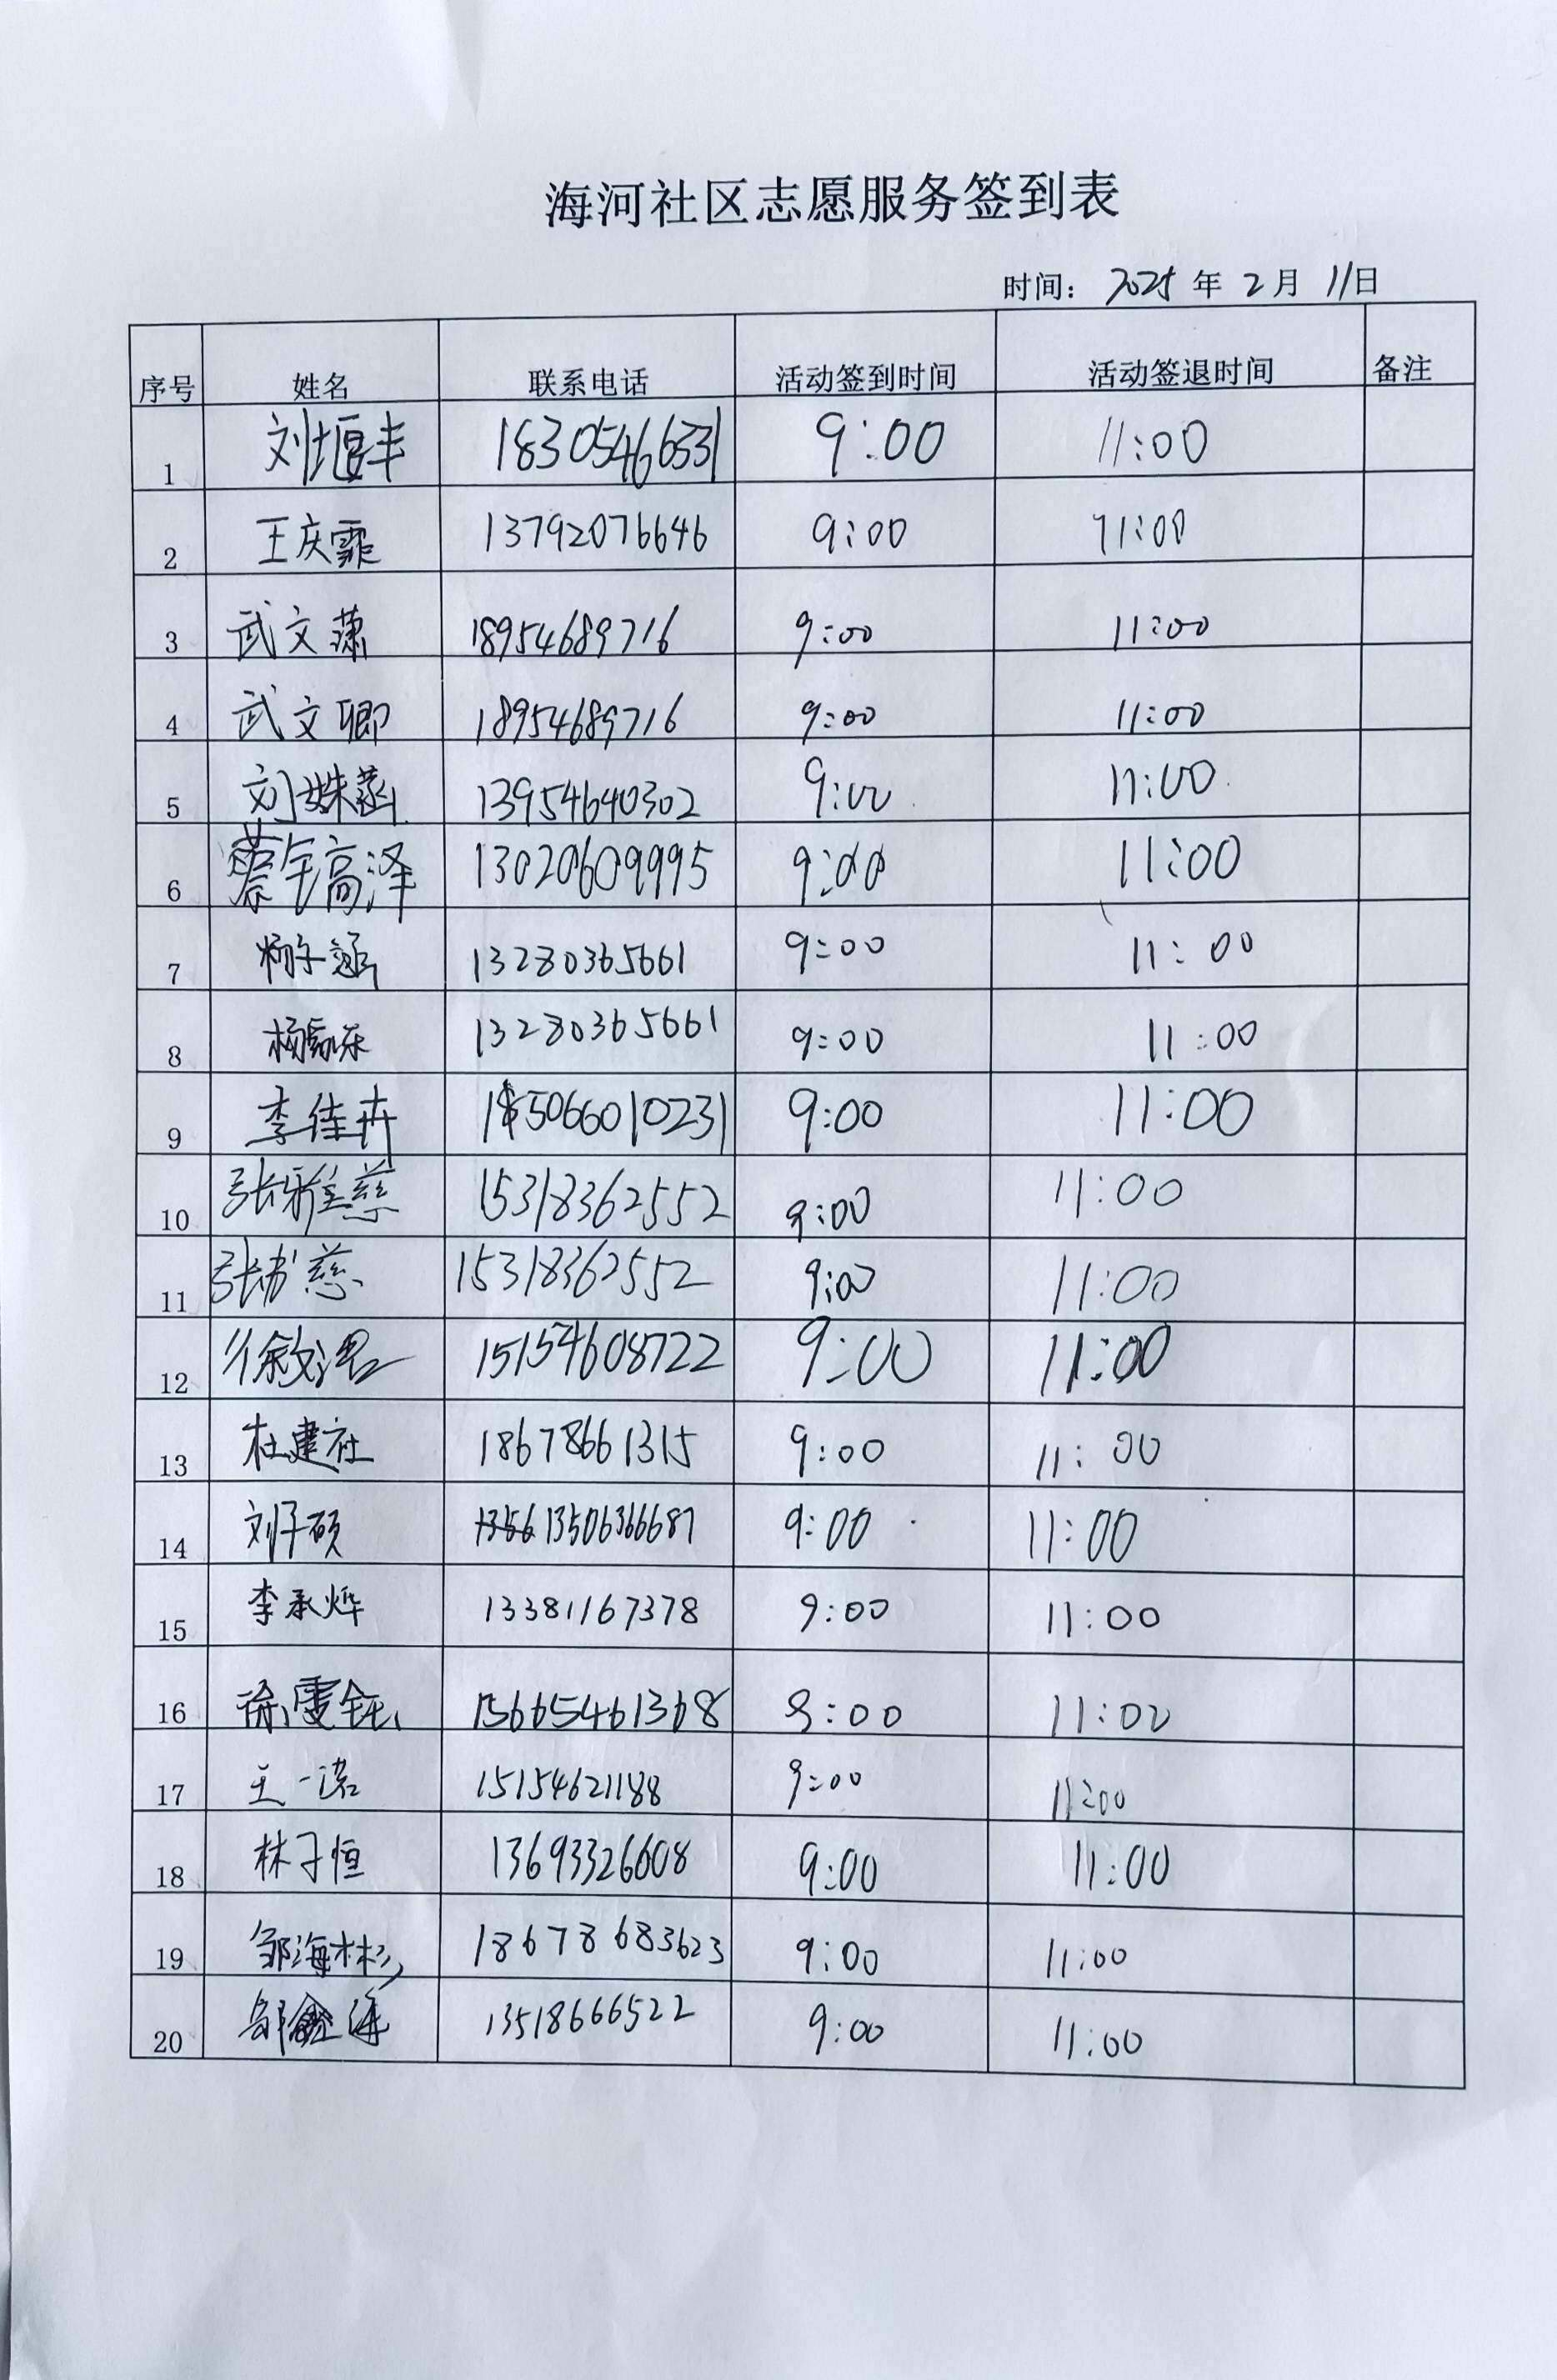 海河社区志愿服务签到表
时间: 2025 年 2 月 11日
序号 姓名 联系电话 活动签到时间 活动签退时间 备注
1 刘堰丰 18305466331 9:00 11:00
2 王庆霏 13792076646 9:00 11:00
3 武文萧 18954689716 9:00 11:00
4 武文卿 18954689716 9:00 11:00
5 刘姝菡 13954640302 9:00 11:00
6 蔡宇高泽 13020609995 9:00 11:00
7 杨子涵 13280365661 9:00 11:00
8 13280365661 9:00 11:00
9 李佳卉 15066010231 9:00 11:00
10 张雅慈 15318362552 9:00 11:00
11 张书慈 15318362552 9:00 11:00
12 15154608722 9:00 11:00
13 杜建社 18678661315 9:00 11:00
14 刘子硕 13506366687 9:00 11:00
15 李承烨 13381167378 9:00 11:00
16 15665461368 9:00 11:00
17 王一诺 15154621188 9:00 11:00
18 林子恒 13693326608 9:00 11:00
19 邹海彬 18678683623 9:00 11:00
20 13518666522 9:00 11:00